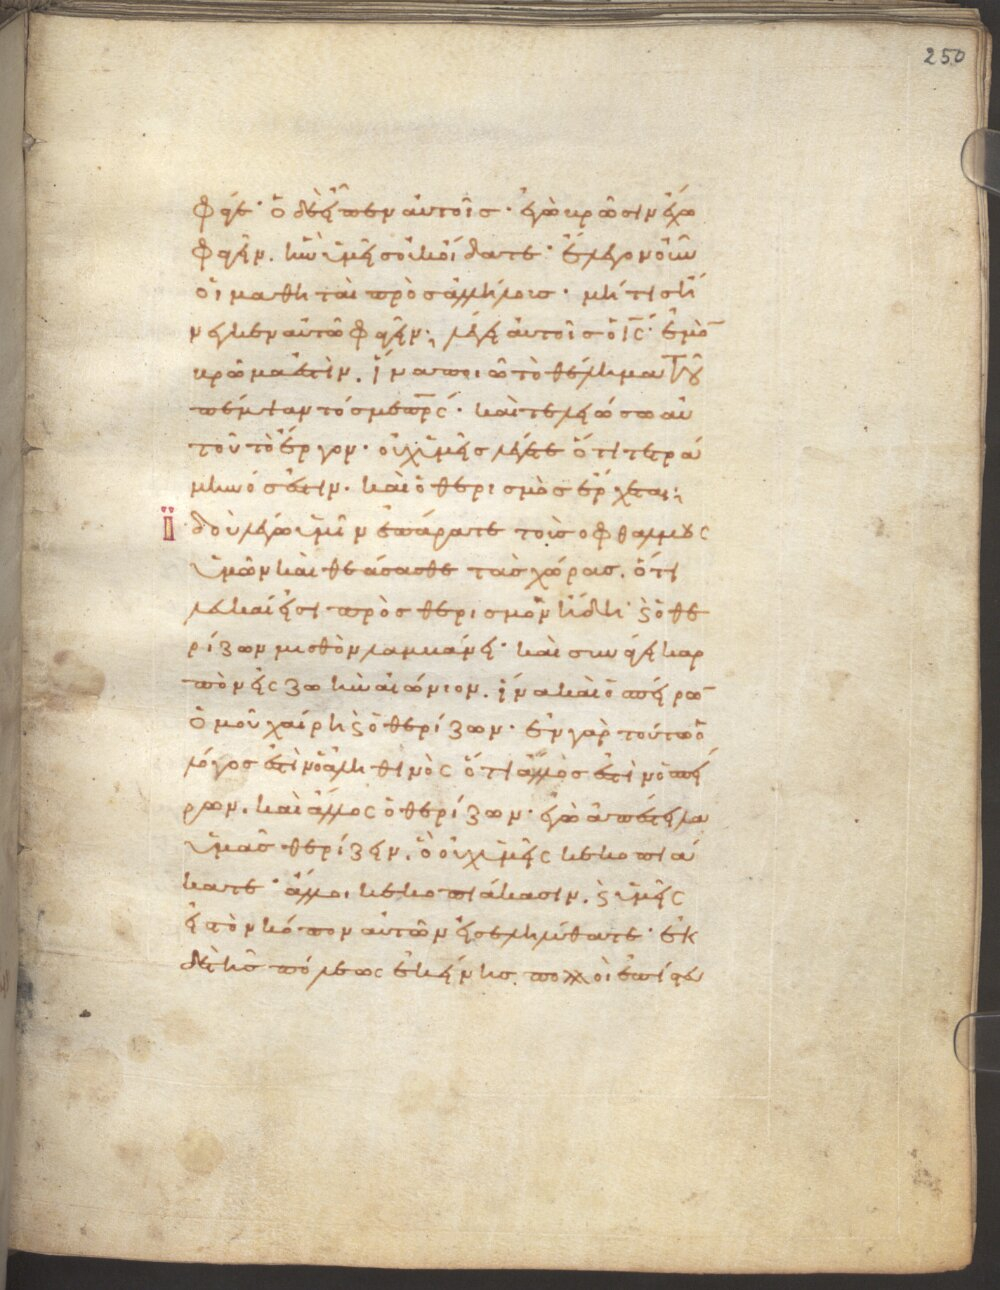 250
φάγε· ὁ δὲ εἶπεν αὐτοῖς· ἐγὼ βρῶσιν ἔχω
φαγεῖν. ἣν ὑμεῖς οὐκ οἴδατε· ἔλεγον οὖν
οἱ μαθηταὶ πρὸς ἀλλήλους· μή τις ἤ
νεγκεν αὐτῶ φαγεῖν; λέγει αὐτοῖς ὁ ις· ἐμὸν
βρῶμα ἐστὶν. ἵνα ποιῶ τὸ θέλημα τοῦ
πέμψαντός με πρς· καὶ τελειώσω αὐ
τοῦ τὸ ἔργον· οὐχ ὑμεῖς λέγετε ὅτι τετρά
μηνός ἐστιν. καὶ ὁ θερισμὸς ἔρχεται;
ἰδοὺ λέγω ὑμῖν ἐπάρατε τοὺς ὀφθαλμοὺς
ὑμῶν καὶ θεάσασθε τὰς χώρας. ὅτι
λευκαί εἰσι πρὸς θερισμὸν ἤδη· ϗ ὁ θε
ρίζων μισθὸν λαμβάνει· καὶ συνάγει καρ
πὸν εἰς ζωὴν αἰώνιον. ἵνα καὶ ὁ σπείρων
ὁμοῦ χαίρῃ ϗ ὁ θερίζων· ἐν γὰρ τούτω ὁ
λόγος ἐστὶν ὁ ἀληθινὸς ὅτι ἄλλος ἐστὶν ὁ σπεί
ρων. καὶ ἄλλος ὁ θερίζων· ἐγὼ ἀπέστειλα
ὑμᾶς θερίζειν. ὃ οὐχ ὑμεῖς κεκοπιά
κατε· ἄλλοι κεκοπιάκασιν. ϗ ὑμεῖς
εἰς τὸν κόπον αὐτῶν εἰσεληλύθατε· ἐκ
δὲ τῆς πόλεως ἐκείνης πολλοὶ ἐπίστευ